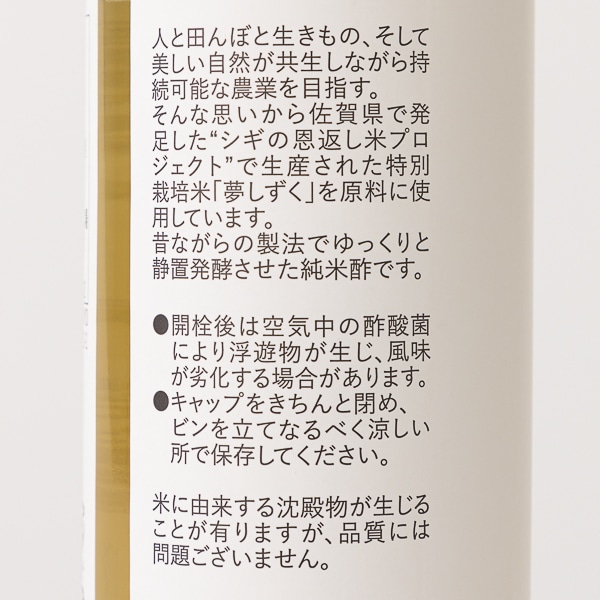 人と田んぼと生きもの、そして
美しい自然が共生しながら持
続可能な農業を目指す。
そんな思いから佐賀県で発
足した“シギの恩返し米プロ
ジェクト”で生産された特別
栽培米「夢しずく」を原料に使
用しています。
昔ながらの製法でゆっくりと
静置発酵させた純米酢です。
●開栓後は空気中の酢酸菌
により浮遊物が生じ、風味
が劣化する場合があります。
●キャップをきちんと閉め、
ビンを立てなるべく涼しい
所で保存してください。
米に由来する沈殿物が生じる
ことが有りますが、品質には
問題ございません。